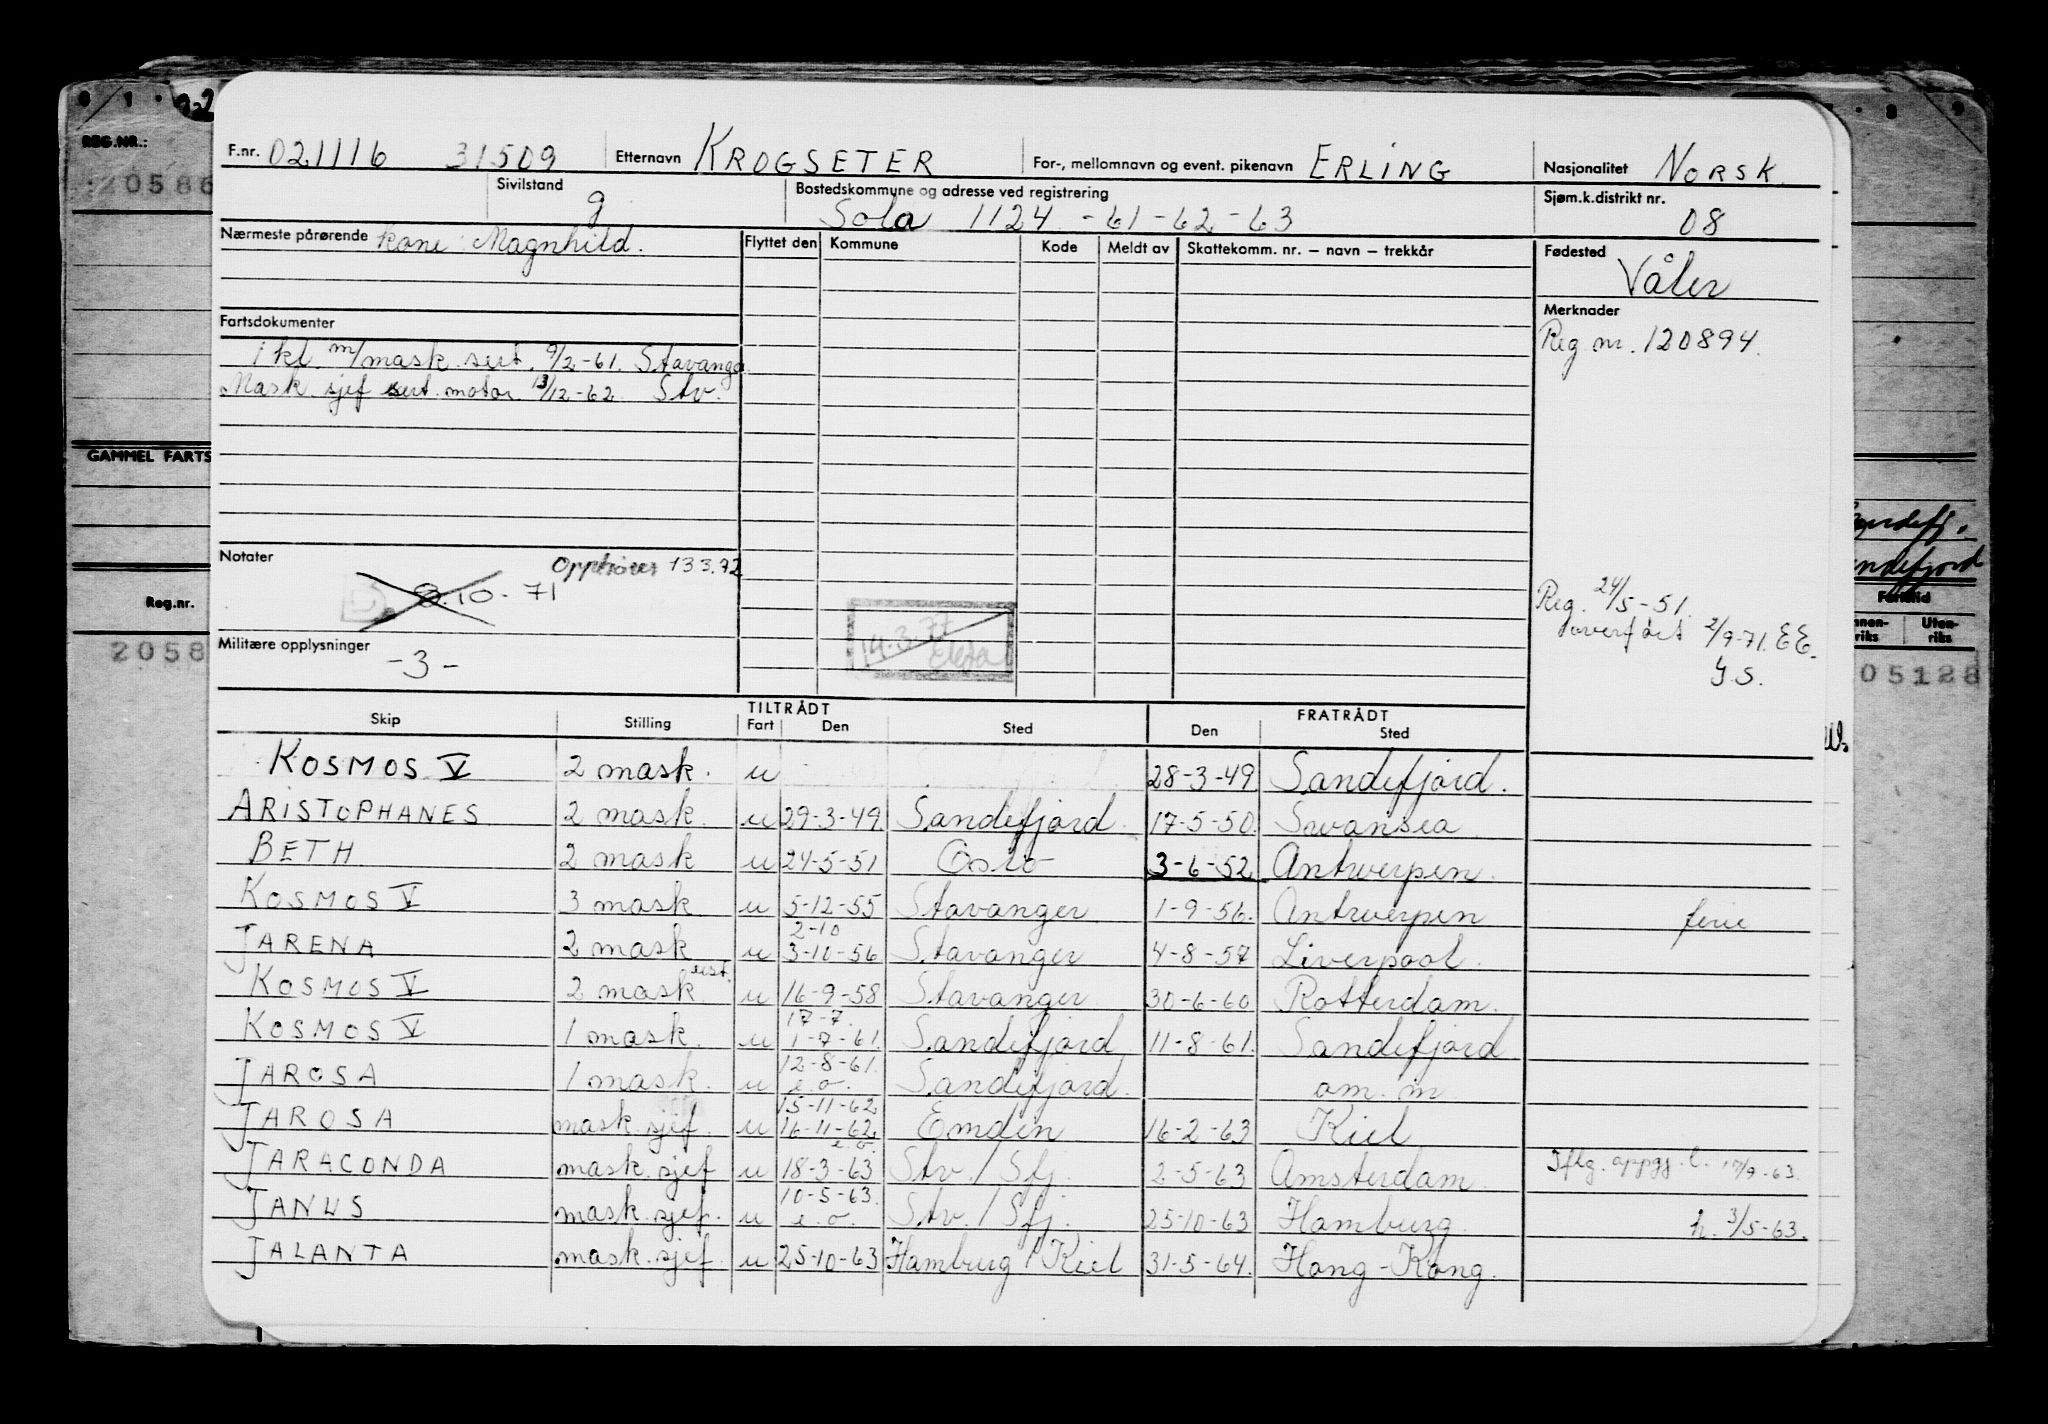 F.nr. 021116 31509 Etternavn KROGSETER For-, mellomnavn og event. pikenavn ERLING Nasjonalitet NORSK.
Sivilstand g Bostedskommune og adresse ved registrering Sola 1124 -61-62-63 Sjøm.k.distrikt nr. 08
Nærmeste pårørende kone: Magnhild. Flyttet den Kommune Kode Meldt av Skattekomm. nr. – navn – trekkår Fødested Våler
Merknader
Reg nr. 120894.
Fartsdokumenter
1 kl m/mask. sert. 9/2-61. Stavanger
Mask. sjef sert. motor. 13/12-62. Stv.
Notater Opphører 13.3.72
D 8.10.-71
14.3.72
Reg. 24/5-51.
overført 2/9-71. EE.
Y.S.
Militære opplysninger -3-
TILTRÅDT FRATRÅDT
Skip Stilling Fart Den Sted Den Sted
KOSMOS V 2 mask. u 28-3-49 Sandefjord.
ARISTOPHANES 2 mask. u 29-3-49. Sandefjord. 17-5-50. Swansea
BETH 2 mask u 24-5-51 Oslo 3-6-52 Antwerpen.
KOSMOS V 3 mask u 5-12-55 Stavanger 1-9-56. Antwerpen ferie
JARENA 2 mask u 2-10 3-10-56 Stavanger 4-8-57 Liverpool.
KOSMOS V 2 mask. u 16-9-58 Stavanger 30-6-60 Rotterdam.
KOSMOS V 1 mask. u 17-7. 1-7-61. Sandefjord 11-8-61. Sandefjord
JAROSA 1 mask. u 12-8-61. e.o. Sandefjord. om. m.
JAROSA mask. sjef. u 15-11-62 16-11-62 e.o. Emden 16-2-63 Kiel
JARACONDA mask. sjef u 18-3-63 Stv. / Sfj. 2-5-63 Amsterdam. Iflg. oppgj. l. 17/9-63.
JANUS mask. sjef. u 10-5-63. e.o. Stv. / Sfj. 25-10-63 Hamburg. h. 3/5-63.
JALANTA mask. sjef. u 25-10-63 Hamburg / Kiel 31-5-64. Hong-Kong.
REG.NR.:
20586
GAMMEL FARTS
Reg.nr.
2058
Sandefj.
Sandefjord
Fartstid
Innen-riks Uten-riks
05128